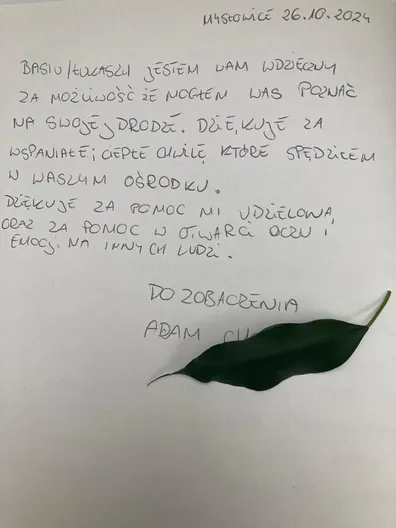 MYSŁOWICE 26.10.2024
BASIU/ŁUKASZU JESTEM WAM WDZIĘCZNY
ZA MOŻLIWOŚĆ ŻE MOGŁEM WAS POZNAĆ
NA SWOJEJ DRODZE. DZIĘKUJE ZA
WSPANIAŁE; CIEPŁE CHWILĘ KTÓRE SPĘDZIŁEM
W WASZYM OŚRODKU.
DZIĘKUJE ZA POMOC MI UDZIELONĄ
ORAZ ZA POMOC W OTWARCI OCZU I
EMOCJI NA INNYCH LUDZI.
DO ZOBACZENIA
ADAM